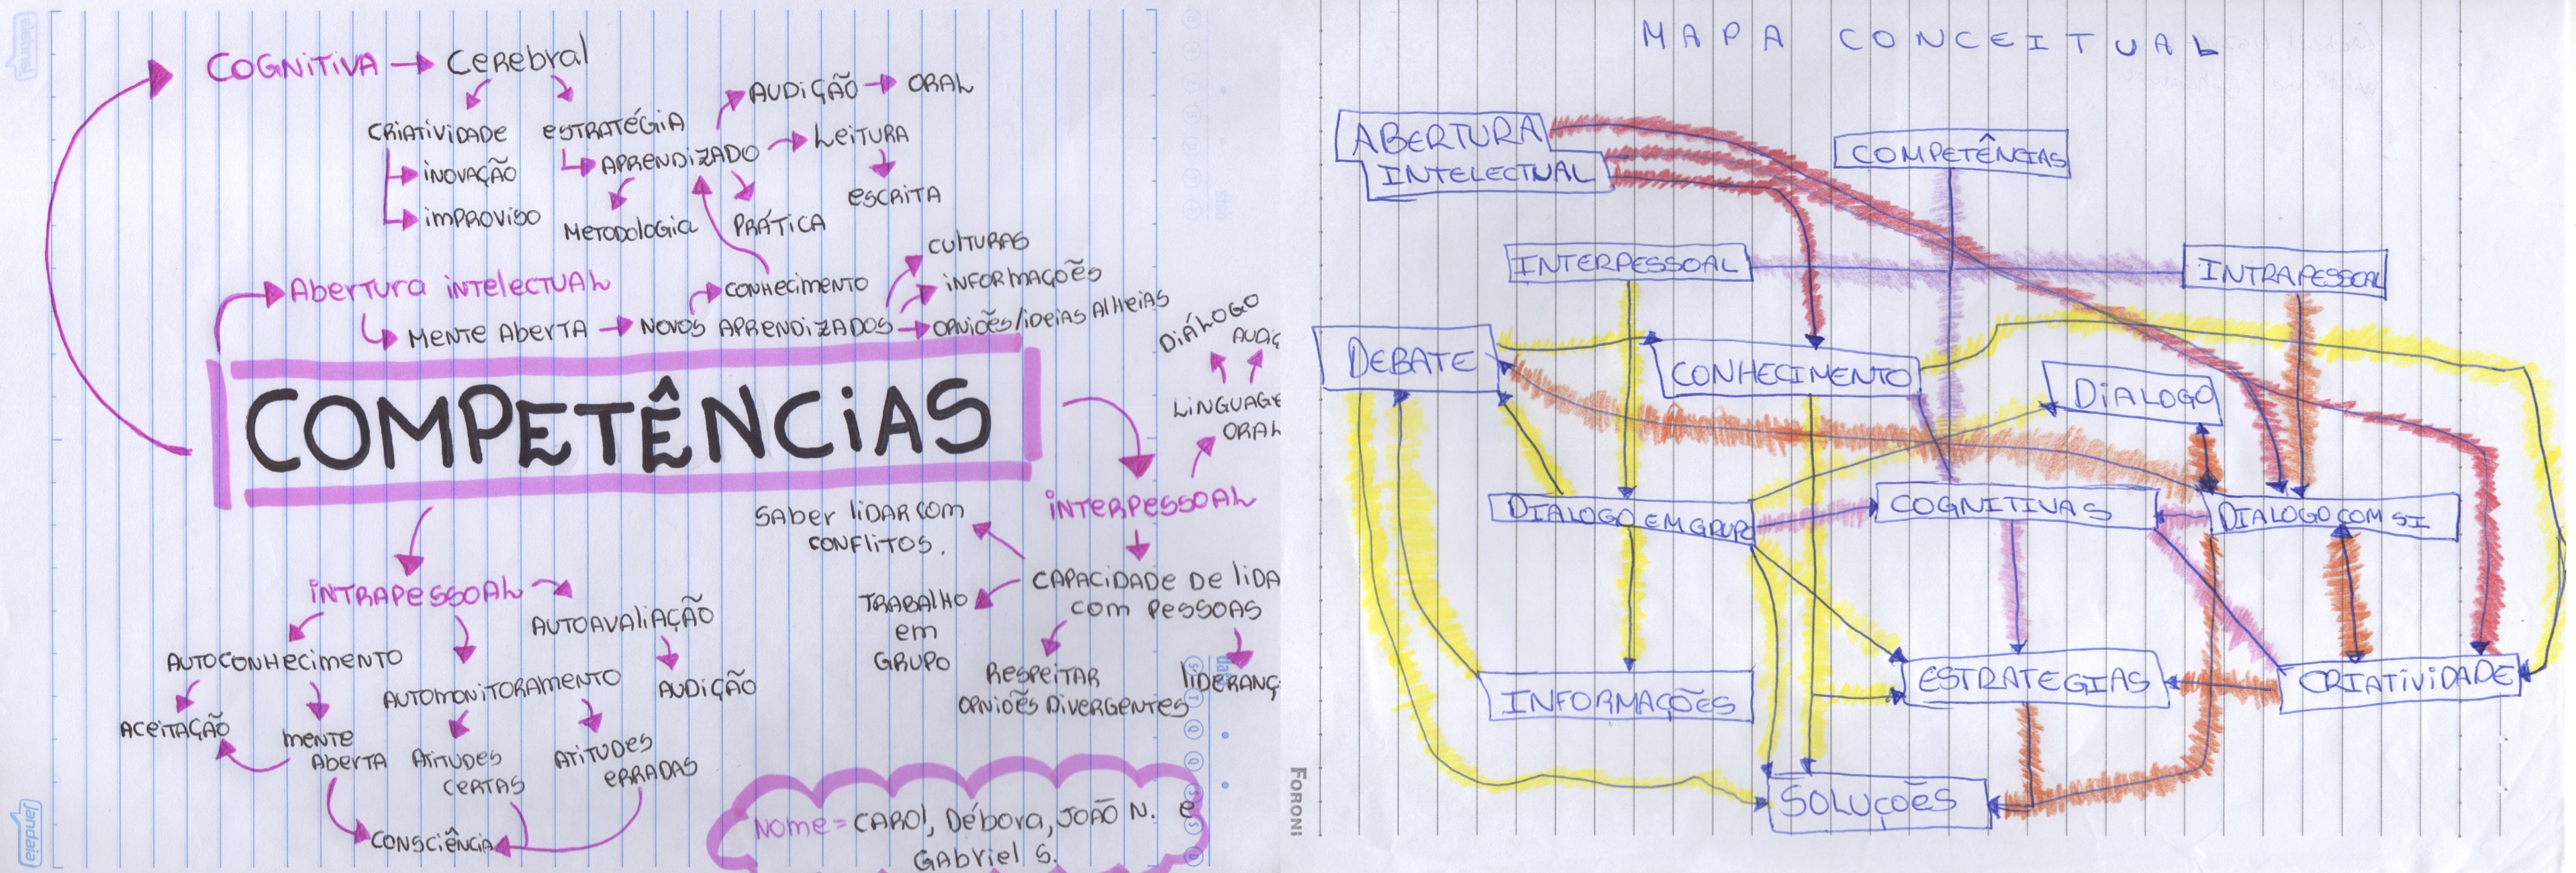 COGNITIVA
Cerebral
CRIATIVIDADE
INOVAÇÃO
IMPROVISO
ESTRATÉGIA
APRENDIZADO
METODOLOGIA
PRÁTICA
AUDIÇÃO
ORAL
LEITURA
ESCRITA
Abertura INTELECTUAL
MENTE ABERTA
NOVOS APRENDIZADOS
CONHECIMENTO
CULTURAS
INFORMAÇÕES
OPNIÕES/IDEIAS ALHEIAS
COMPETÊNCIAS
DIÁLOGO
AUDIÇ
LINGUAGE
ORAL
INTERPESSOAL
SABER LIDAR COM
CONFLITOS.
CAPACIDADE DE LIDA
COM PESSOAS
TRABALHO
EM
GRUPO
RESPEITAR
OPNIÕES DIVERGENTES
LIDERANÇ
INTRAPESSOAL
AUTOCONHECIMENTO
ACEITAÇÃO
MENTE
ABERTA
AUTOMONITORAMENTO
ATITUDES
CERTAS
ATITUDES
ERRADAS
AUTOAVALIAÇÃO
AUDIÇÃO
CONSCIÊNCIA
NOME = CAROL, Débora, JOÃO N. e
GABRIEL S.
Jandaia
MAPA CONCEITUAL
ABERTURA
INTELECTUAL
COMPETÊNCIAS
INTERPESSOAL
INTRAPESSOAL
DEBATE
CONHECIMENTO
DIALOGO
DIALOGO EM GRUP
COGNITIVAS
DIALOGO COM SI
INFORMAÇÕES
ESTRATEGIAS
CRIATIVIDADE
SOLUÇÕES
FORONI